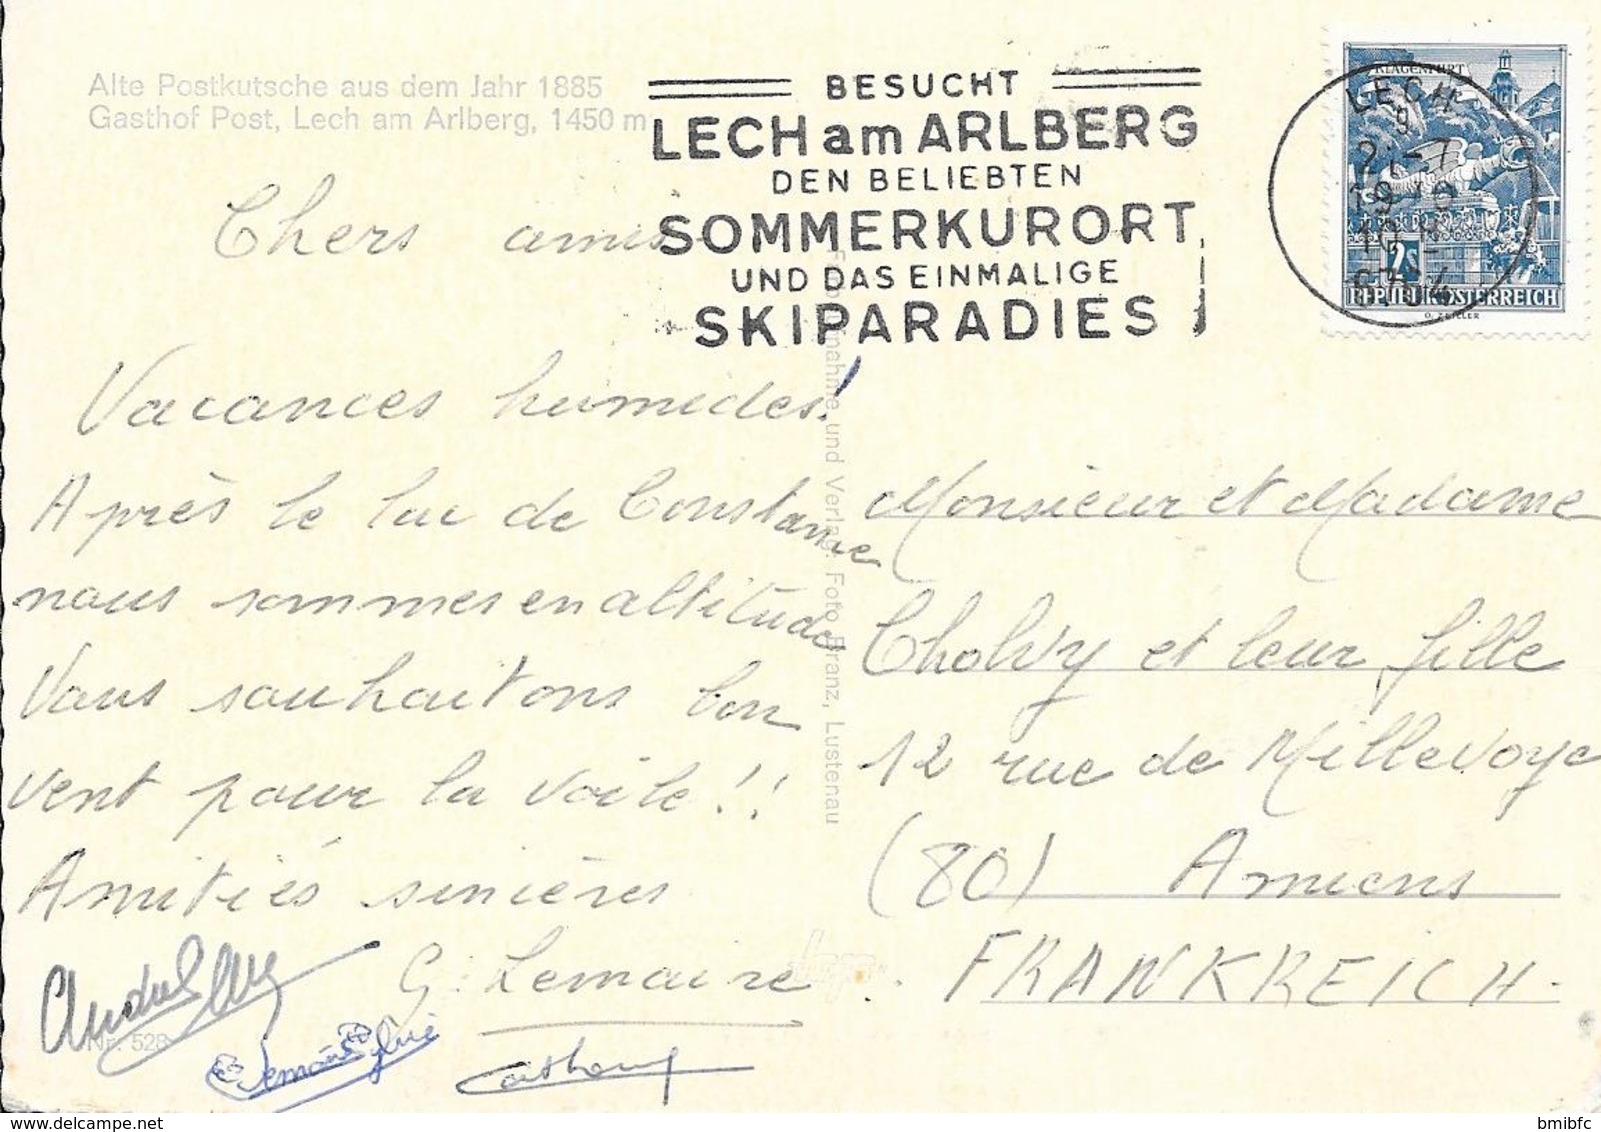 Alte Postkutsche aus dem Jahr 1885
Gasthof Post, Lech am Arlberg, 1450 m
BESUCHT
LECH am ARLBERG
DEN BELIEBTEN
SOMMERKURORT
UND DAS EINMALIGE
SKIPARADIES
KLAGENFURT
LECH
6764
2S
REPUBLIK ÖSTERREICH
O. ZEILLER
Chers amis
Vacances humides!
Après le lac de Constance
nous sommes en altitude
Vous souhaitons bon
vent pour la voile!!
Amitiés sincères
G. Lemaire
Sylvie
Nr. 528
und Verlag: Foto Branz, Lustenau
Monsieur et Madame
Cholvy et leur fille
12 rue de Millevoye
(80) Amiens
FRANKREICH.
bmibfc